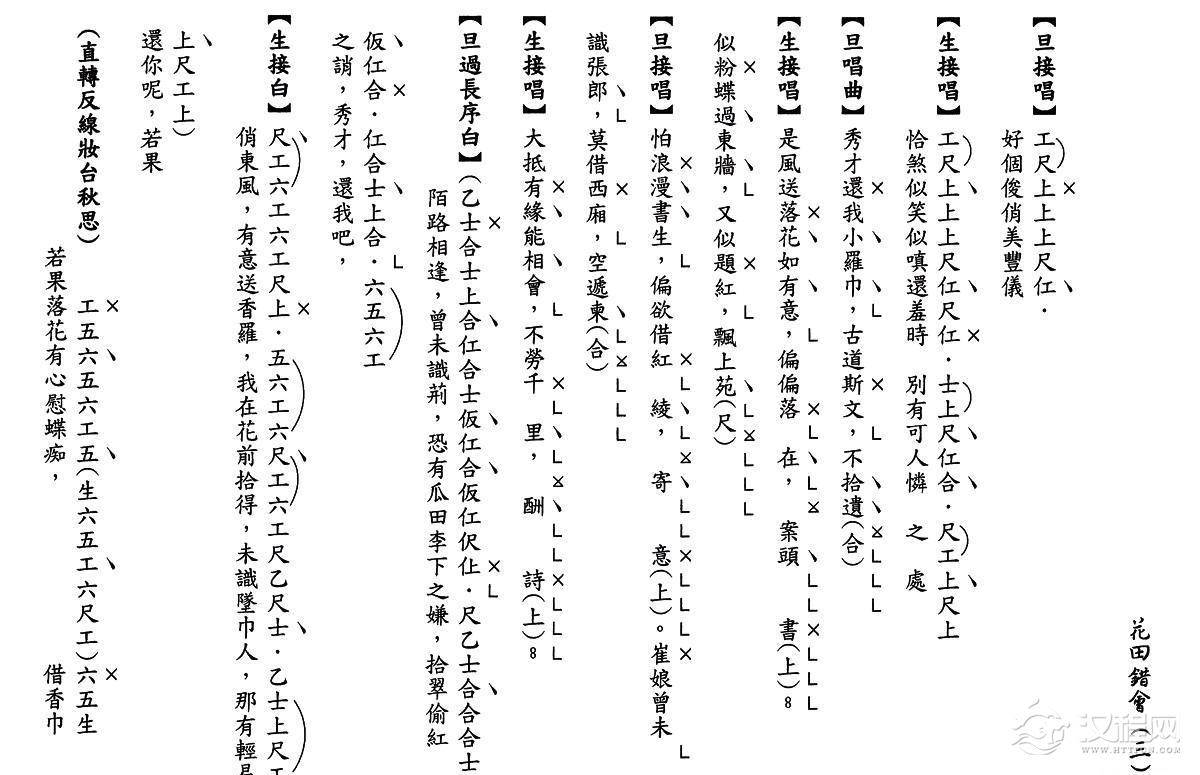 花田錯會(三)
【旦接唱】工尺上上上尺仜．
好個俊俏美豐儀
【生接唱】工尺上上上尺仜尺仜．士上尺仜合．尺工上尺上
恰煞似笑似嗔還羞時 別有可人憐 之 處
【旦唱曲】秀才還我小羅巾，古道斯文，不拾遺(合)
【生接唱】是風送落花如有意，偏偏落 在， 案頭 書(上)8
似粉蝶過東牆，又似題紅，飄上苑(尺)
【旦接唱】怕浪漫書生，偏欲借紅 綾， 寄 意(上)。崔娘曾未
識張郎，莫借西廂，空遞柬(合)
【生接唱】大抵有緣能相會，不勞千 里， 酬 詩(上)8
【旦過長序白】(乙士合士上合仜合士仮仜合仮仜伬仩．尺乙士合合合士
陌路相逢，曾未識荊，恐有瓜田李下之嫌，拾翠偷紅
仮仜合．仜合士上合．六五六工
之誚，秀才，還我吧，
【生接白】尺工六工六工尺上．五六工六尺工六工尺乙尺士．乙士上尺
俏東風，有意送香羅，我在花前拾得，未識墜巾人，那有輕
上尺工上)
還你呢，若果
(直轉反線妝台秋思) 工五六五六工五(生六五工六尺工)六五生
若果落花有心慰蝶痴， 借香巾
汉程网
WWW.HTTPCN.COM